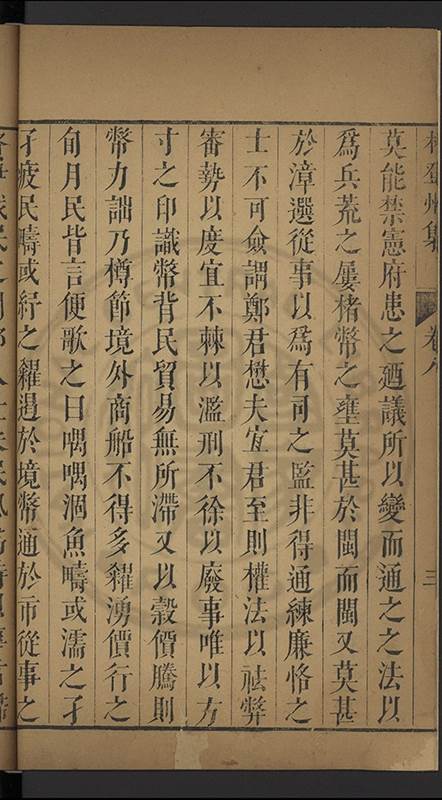 林登州集 卷八 三
莫能禁憲府患之廼議所以變而通之之法以
爲兵荒之屢楮幣之壅莫甚於閩而閩又莫甚
於漳選從事以爲有司之監非得通練廉恪之
士不可僉謂鄭君懋夫宜君至則權法以祛弊
審勢以度宜不棘以濫刑不徐以廢事唯以方
寸之印識幣背民貿易無所滯又以榖價騰則
幣力詘乃樽節境外商船不得多糴湧價行之
旬月民皆言便歌之曰喁喁涸魚疇或濡之孑
孑疲民疇或紓之糴遏於境幣通於市從事之